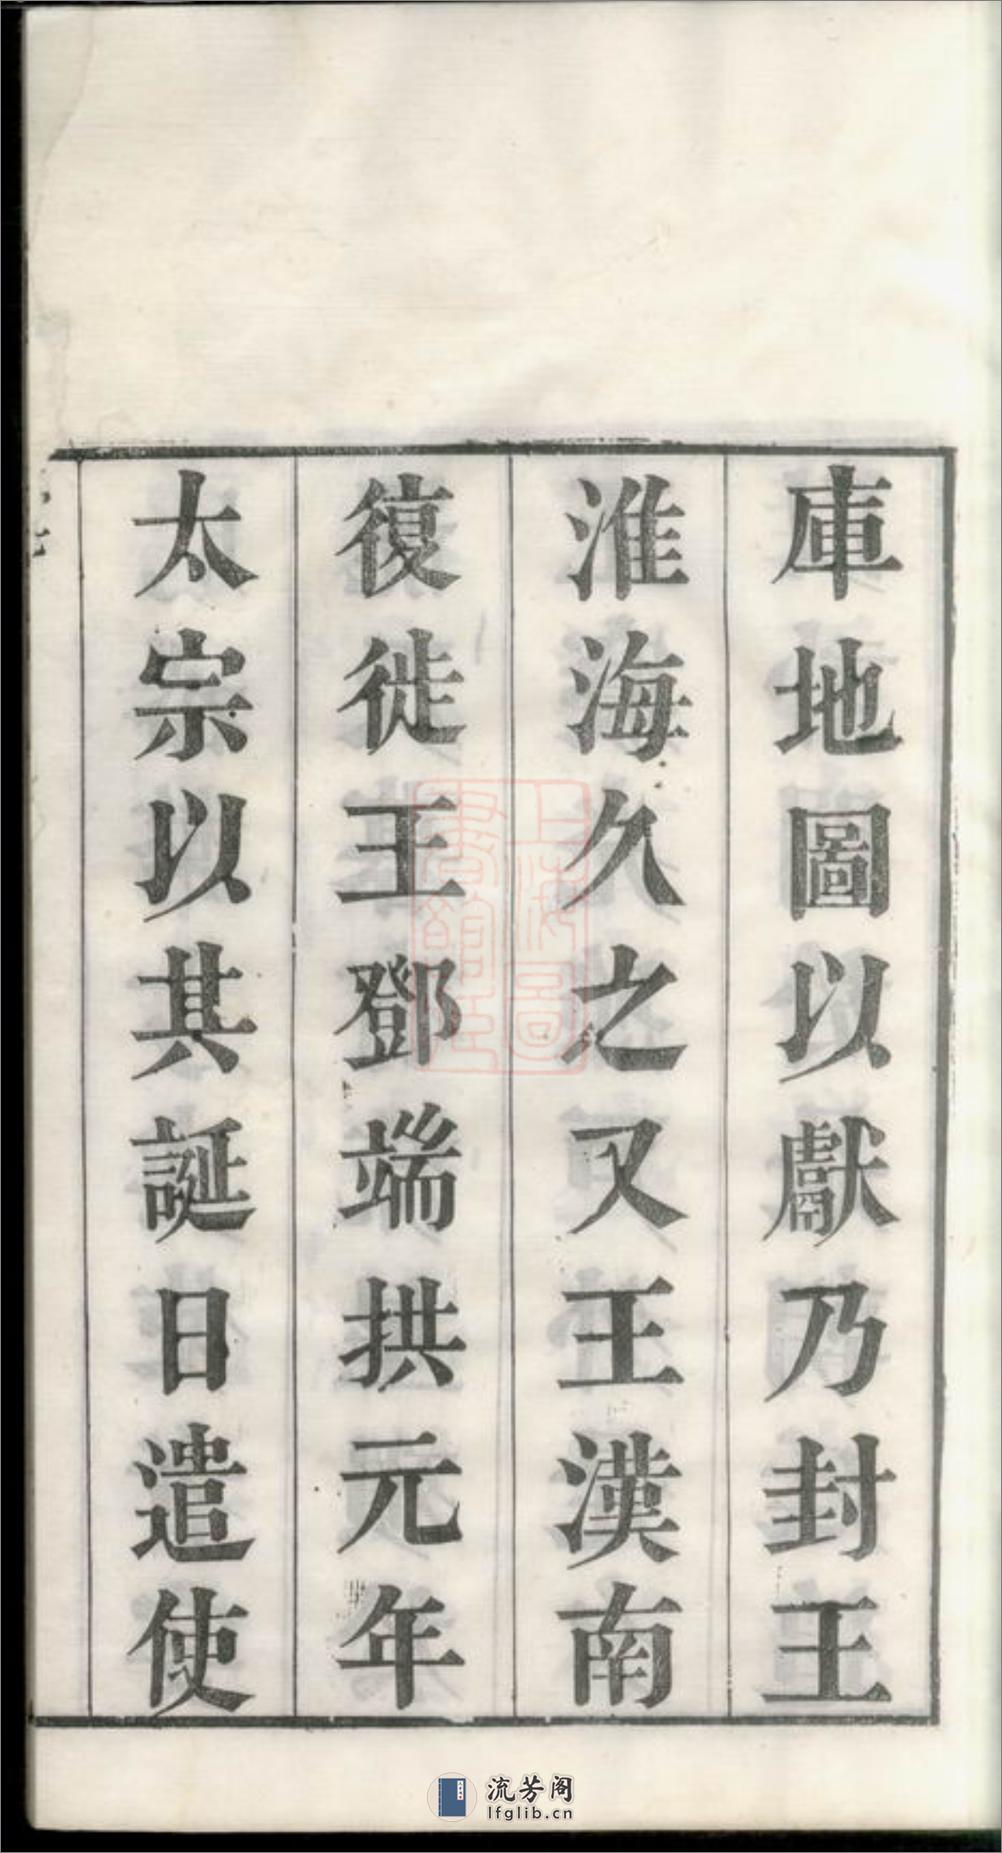 庫地圖以獻乃封王
淮海久之又王漢南
復徙王鄧端拱元年
太宗以其誕日遣使
上海圖書館藏
流芳阁
lfglib.cn